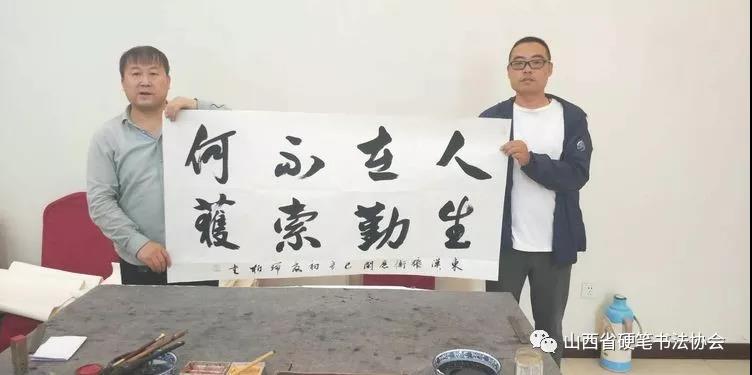 人生
在勤
不索
何獲
東漢張衡應間己亥初夏柏書
山西省硬笔书法协会